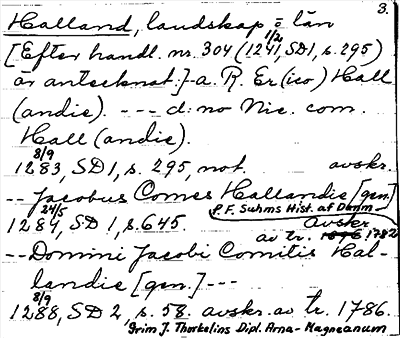 3.
Halland, landskap o län
[Efter handl. nr. 304 (1241 1/2, SD1, s. 295)
är antecknat:] - a. R. Er(ico) Hall
(andie). --- d:no Nic. com.
Hall (andie).
8/9
1283, SD 1, s. 295, not. avskr.
-- Jacobus Comes Hallandie [gen]
24/5 P. F. Suhms Hist. af Danm
1284, SD 1, s. 645. Avskr.
av tr. 1782
-- Domini Jacobi Comitis Hal-
landie [gen.] ---
8/9
1288, SD 2, s. 58. avskr. av tr. 1786.
Grim J. Thorkelins Dipl. Arna-Magneanum